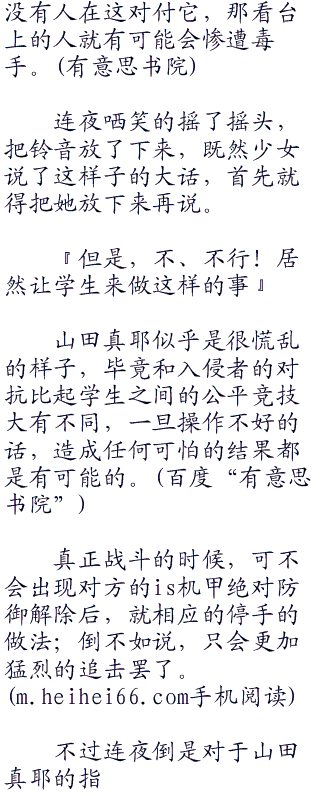 没有人在这对付它，那看台
上的人就有可能会惨遭毒
手。(有意思书院)
连夜哂笑的摇了摇头，
把铃音放了下来，既然少女
说了这样子的大话，首先就
得把她放下来再说。
『但是，不、不行！居
然让学生来做这样的事』
山田真耶似乎是很慌乱
的样子，毕竟和入侵者的对
抗比起学生之间的公平竞技
大有不同，一旦操作不好的
话，造成任何可怕的结果都
是有可能的。(百度“有意思
书院”)
真正战斗的时候，可不
会出现对方的is机甲绝对防
御解除后，就相应的停手的
做法；倒不如说，只会更加
猛烈的追击罢了。
(m.heihei66.com手机阅读)
不过连夜倒是对于山田
真耶的指